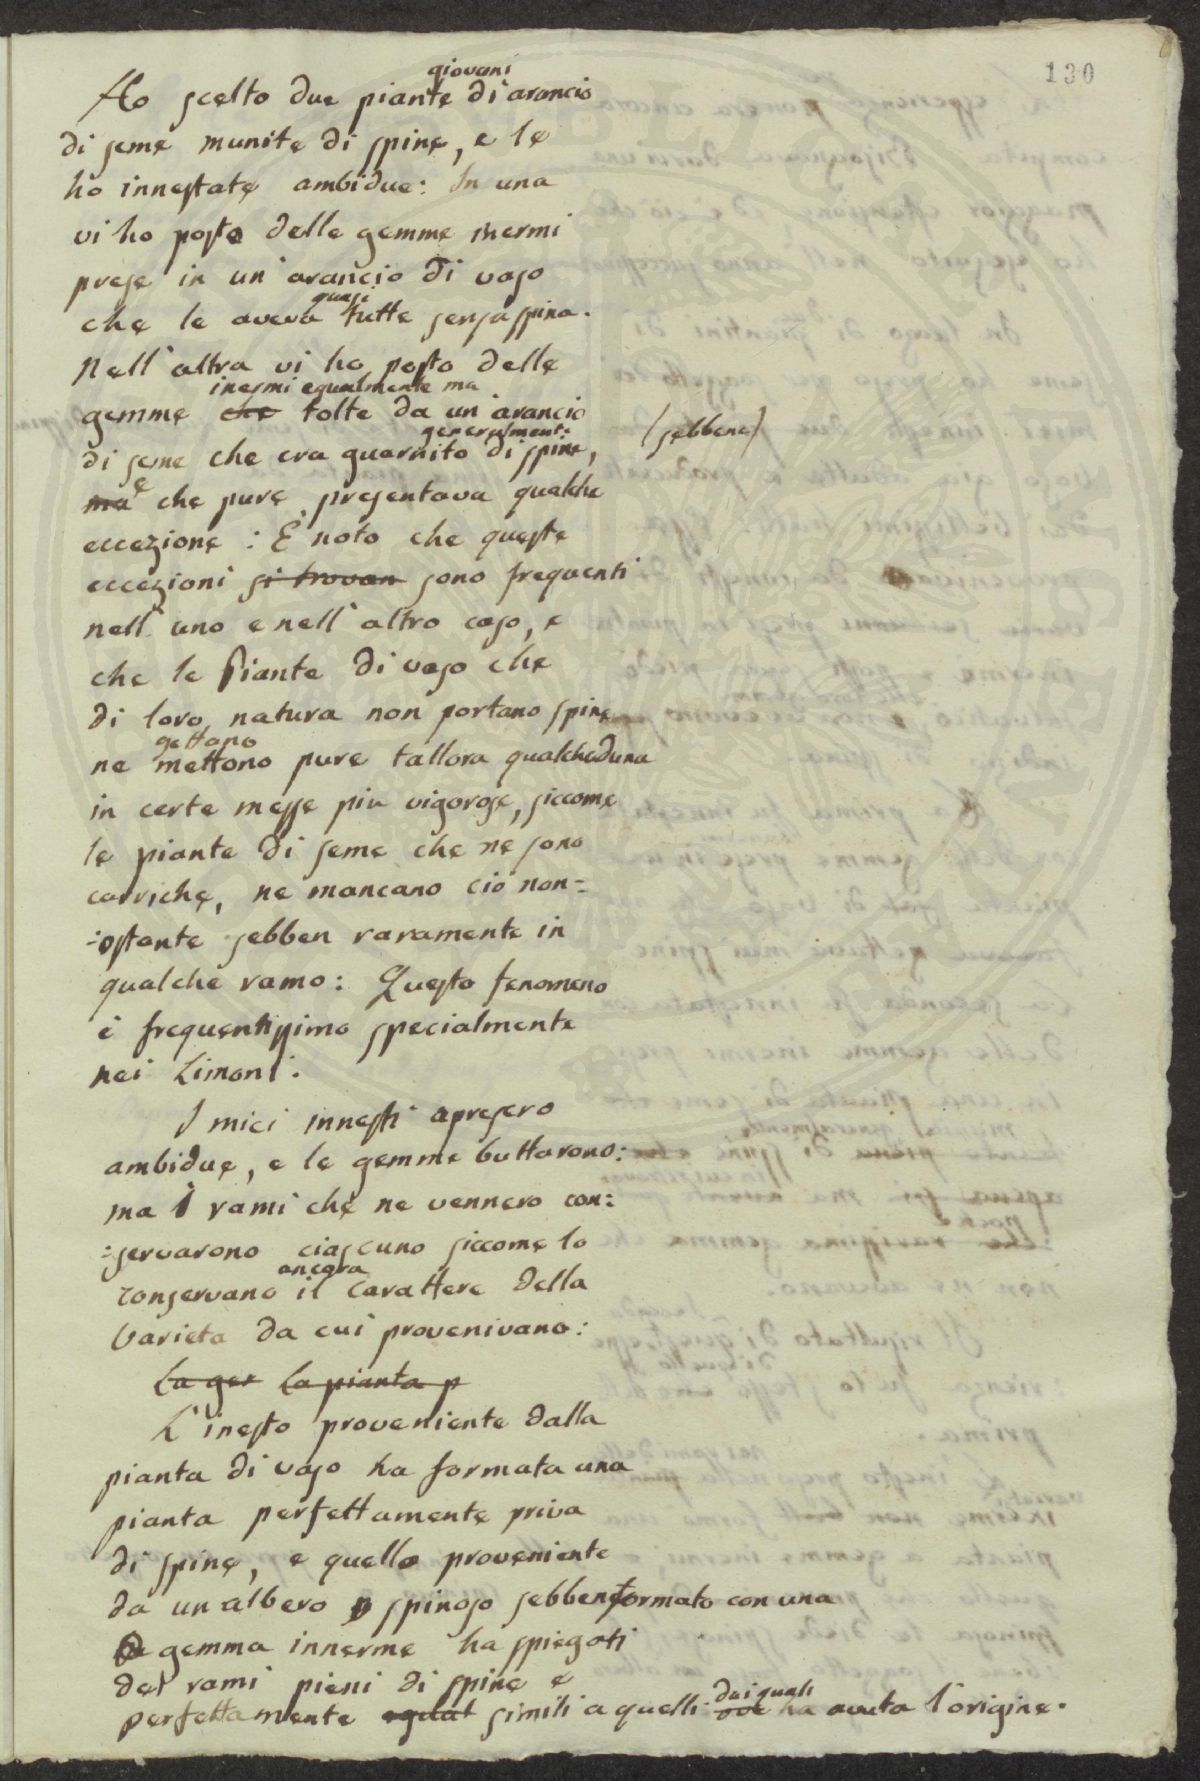 130
giovani
Ho scelto due piante di arancio
di seme munite di spine, e le
ho innestate ambidue: In una
vi ho posto delle gemme inermi
prese in un' arancio di vaso
quasi
che le aveva tutte senza spina.
Nell' altra vi ho posto delle
inermi egualmente ma
gemme che tolte da un' arancio
generalmente
(sebbene)
di seme che era guarnito di spine,
e
ma che pure presentava qualche
eccezione : È noto che queste
eccezioni si trovan sono frequenti
nell' uno e nell' altro caso, e
che le Piante di vaso che
di loro natura non portano spine
gettano
ne mettono pure tallora qualcheduna
in certe messe piu vigorose, siccome
le piante di seme che ne sono
carriche, ne mancano ciò non-
-ostante sebben raramente in
qualche ramo: Questo fenomeno
è frequentissimo specialmente
nei Limoni.
I miei innesti apresero
ambidue, e le gemme buttarono:
ma i rami che ne vennero con:
:servarono ciascuno siccome lo
ancora
conservano il carattere della
Varieta da cui provenivano:
La ger La pianta p
L'inesto proveniente dalla
pianta di vaso ha formata una
pianta perfettamente priva
di spine, e quello proveniente
da un albero spinoso sebben formato con una
gemma innerme ha spiegati
dei rami pieni di spine e
dai quali
perfettamente egual simili a quelli ove ha avuta l'origine.